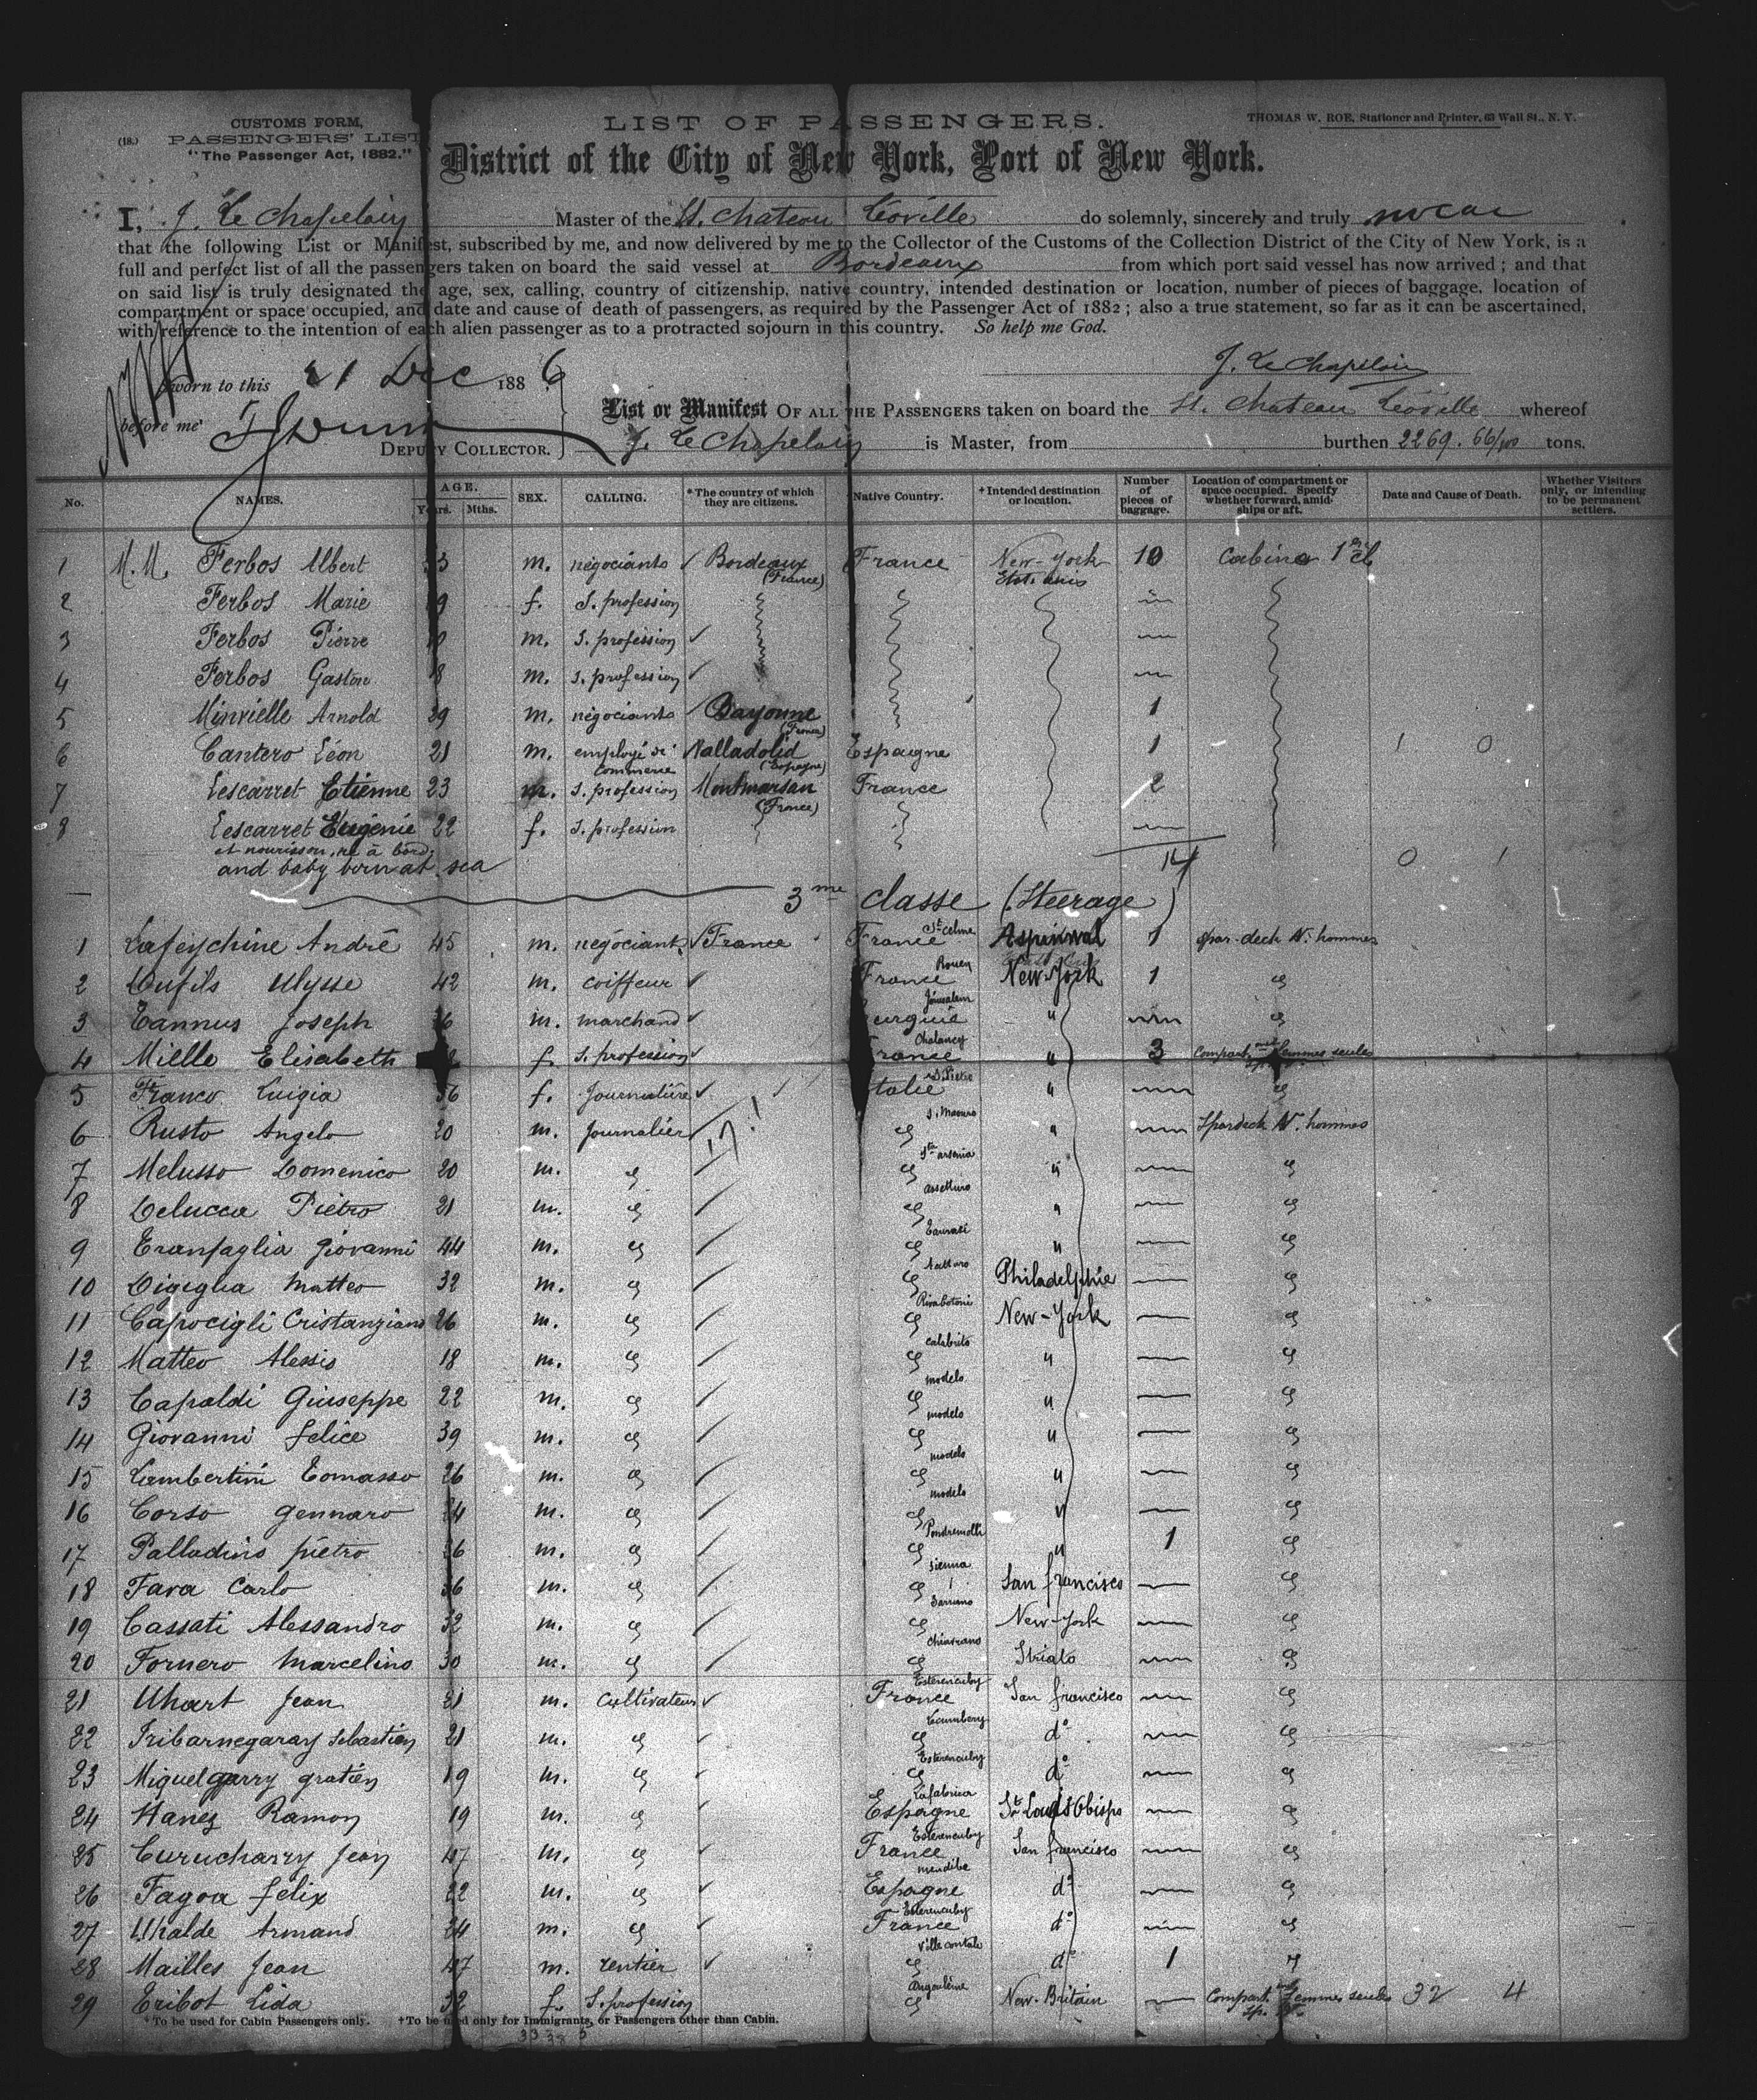 CUSTOMS FORM,
(18.) PASSENGERS' LIST
"The Passenger Act, 1882."
LIST OF PASSENGERS.
THOMAS W. ROE, Stationer and Printer, 63 Wall St., N. Y.
District of the City of New York, Port of New York.
I, J. Le Chapelain Master of the St. Chateau Léoville do solemnly, sincerely and truly swear
that the following List or Manifest, subscribed by me, and now delivered by me to the Collector of the Customs of the Collection District of the City of New York, is a
full and perfect list of all the passengers taken on board the said vessel at Bordeaux from which port said vessel has now arrived; and that
on said list is truly designated the age, sex, calling, country of citizenship, native country, intended destination or location, number of pieces of baggage, location of
compartment or space occupied, and date and cause of death of passengers, as required by the Passenger Act of 1882; also a true statement, so far as it can be ascertained,
with reference to the intention of each alien passenger as to a protracted sojourn in this country. So help me God.
J. Le Chapelain
Sworn to this 21 Dec 1886
before me
DEPUTY COLLECTOR.
List or Manifest OF ALL THE PASSENGERS taken on board the St. Chateau Léoville whereof
J. Le Chapelain is Master, from burthen 2269.66/100 tons.
No. NAMES. AGE. Years. Mths. SEX. CALLING. *The country of which they are citizens. Native Country. †Intended destination or location. Number of pieces of baggage. Location of compartment or space occupied. Specify whether forward, amidships or aft. Date and Cause of Death. Whether Visitors only, or intending to be permanent settlers.
1 M.M. Ferbos Albert m. négociants Bordeaux (France) France New-York Etats unis 10 Cabine 1re cl
2 Ferbos Marie f. S. profession
3 Ferbos Pierre m. s. profession
4 Ferbos Gaston m. s. profession
5 Minvielle Arnold 29 m. négociants Bayonne (France) 1
6 Cantero Léon 21 m. employé de commerce Valladolid (Espagne) Espagne 1 1 0
7 Lescarret Etienne 23 m. s. profession Montmarsan (France) France 2
8 Lescarret Eugénie 22 f. s. profession
et nourisson, né à bord
and baby born at sea 14 0 1
3me classe (Steerage)
1 Lafeychine André 45 m. négociant France France St Celme Aspinwal 1 spar-deck N. hommes
2 Dufils Ulysse 42 m. coiffeur France Rouen New-York 1 "
3 Tannus Joseph m. marchand Turquie Jérusalem " "
4 Mielle Elisabeth f. s. profession France Chalancy " 3 Compart. femmes seules
5 Franco Luigia 36 f. Journalière Italie S. Pietro " "
6 Rusto Angelo 20 m. Journalier " " Spardeck N. hommes
7 Melusso Domenico 20 m. " " " "
8 Delucca Pietro 21 m. " " " "
9 Tranfaglia Giovanni 44 m. " " " "
10 Digiglia Matteo 32 m. " " Philadelphie "
11 Capocigli Cristanziano 26 m. " " New-York "
12 Matteo Alessis 18 m. " " calabrito " "
13 Capaldi Giuseppe 22 m. " " modelo " "
14 Giovanni Felice 39 m. " " modelo " "
15 Lambertini Tomasso 26 m. " " modelo " "
16 Corso Gennaro m. " " modelo " "
17 Palladino pietro 36 m. " " " 1 "
18 Fava Carlo 36 m. " " sienna San francisco "
19 Cassati Alessandro 32 m. " " New-York "
20 Fornero Marcelino 30 m. " " "
21 Uhart Jean 21 m. Cultivateur France Esterencuby San francisco "
22 Iribarnegaray Sebastien 21 m. " " do "
23 Miquelgarry gratien 19 m. " " Esterencuby do "
24 Hanez Ramon 19 m. " Espagne St Louis Obispo "
25 Curucharry Jean 47 m. " France Esterencuby San francisco "
26 Fagoa felix 22 m. " Espagne mendibe do "
27 Uhalde Armand 24 m. " France Esterencuby do "
28 Mailles Jean 47 m. rentier " do 1 "
29 Tribot Lida 32 f. S. profession " Angoulême New-Britain Compart. femmes seules 32 4
*To be used for Cabin Passengers only. †To be used only for Immigrants, or Passengers other than Cabin.